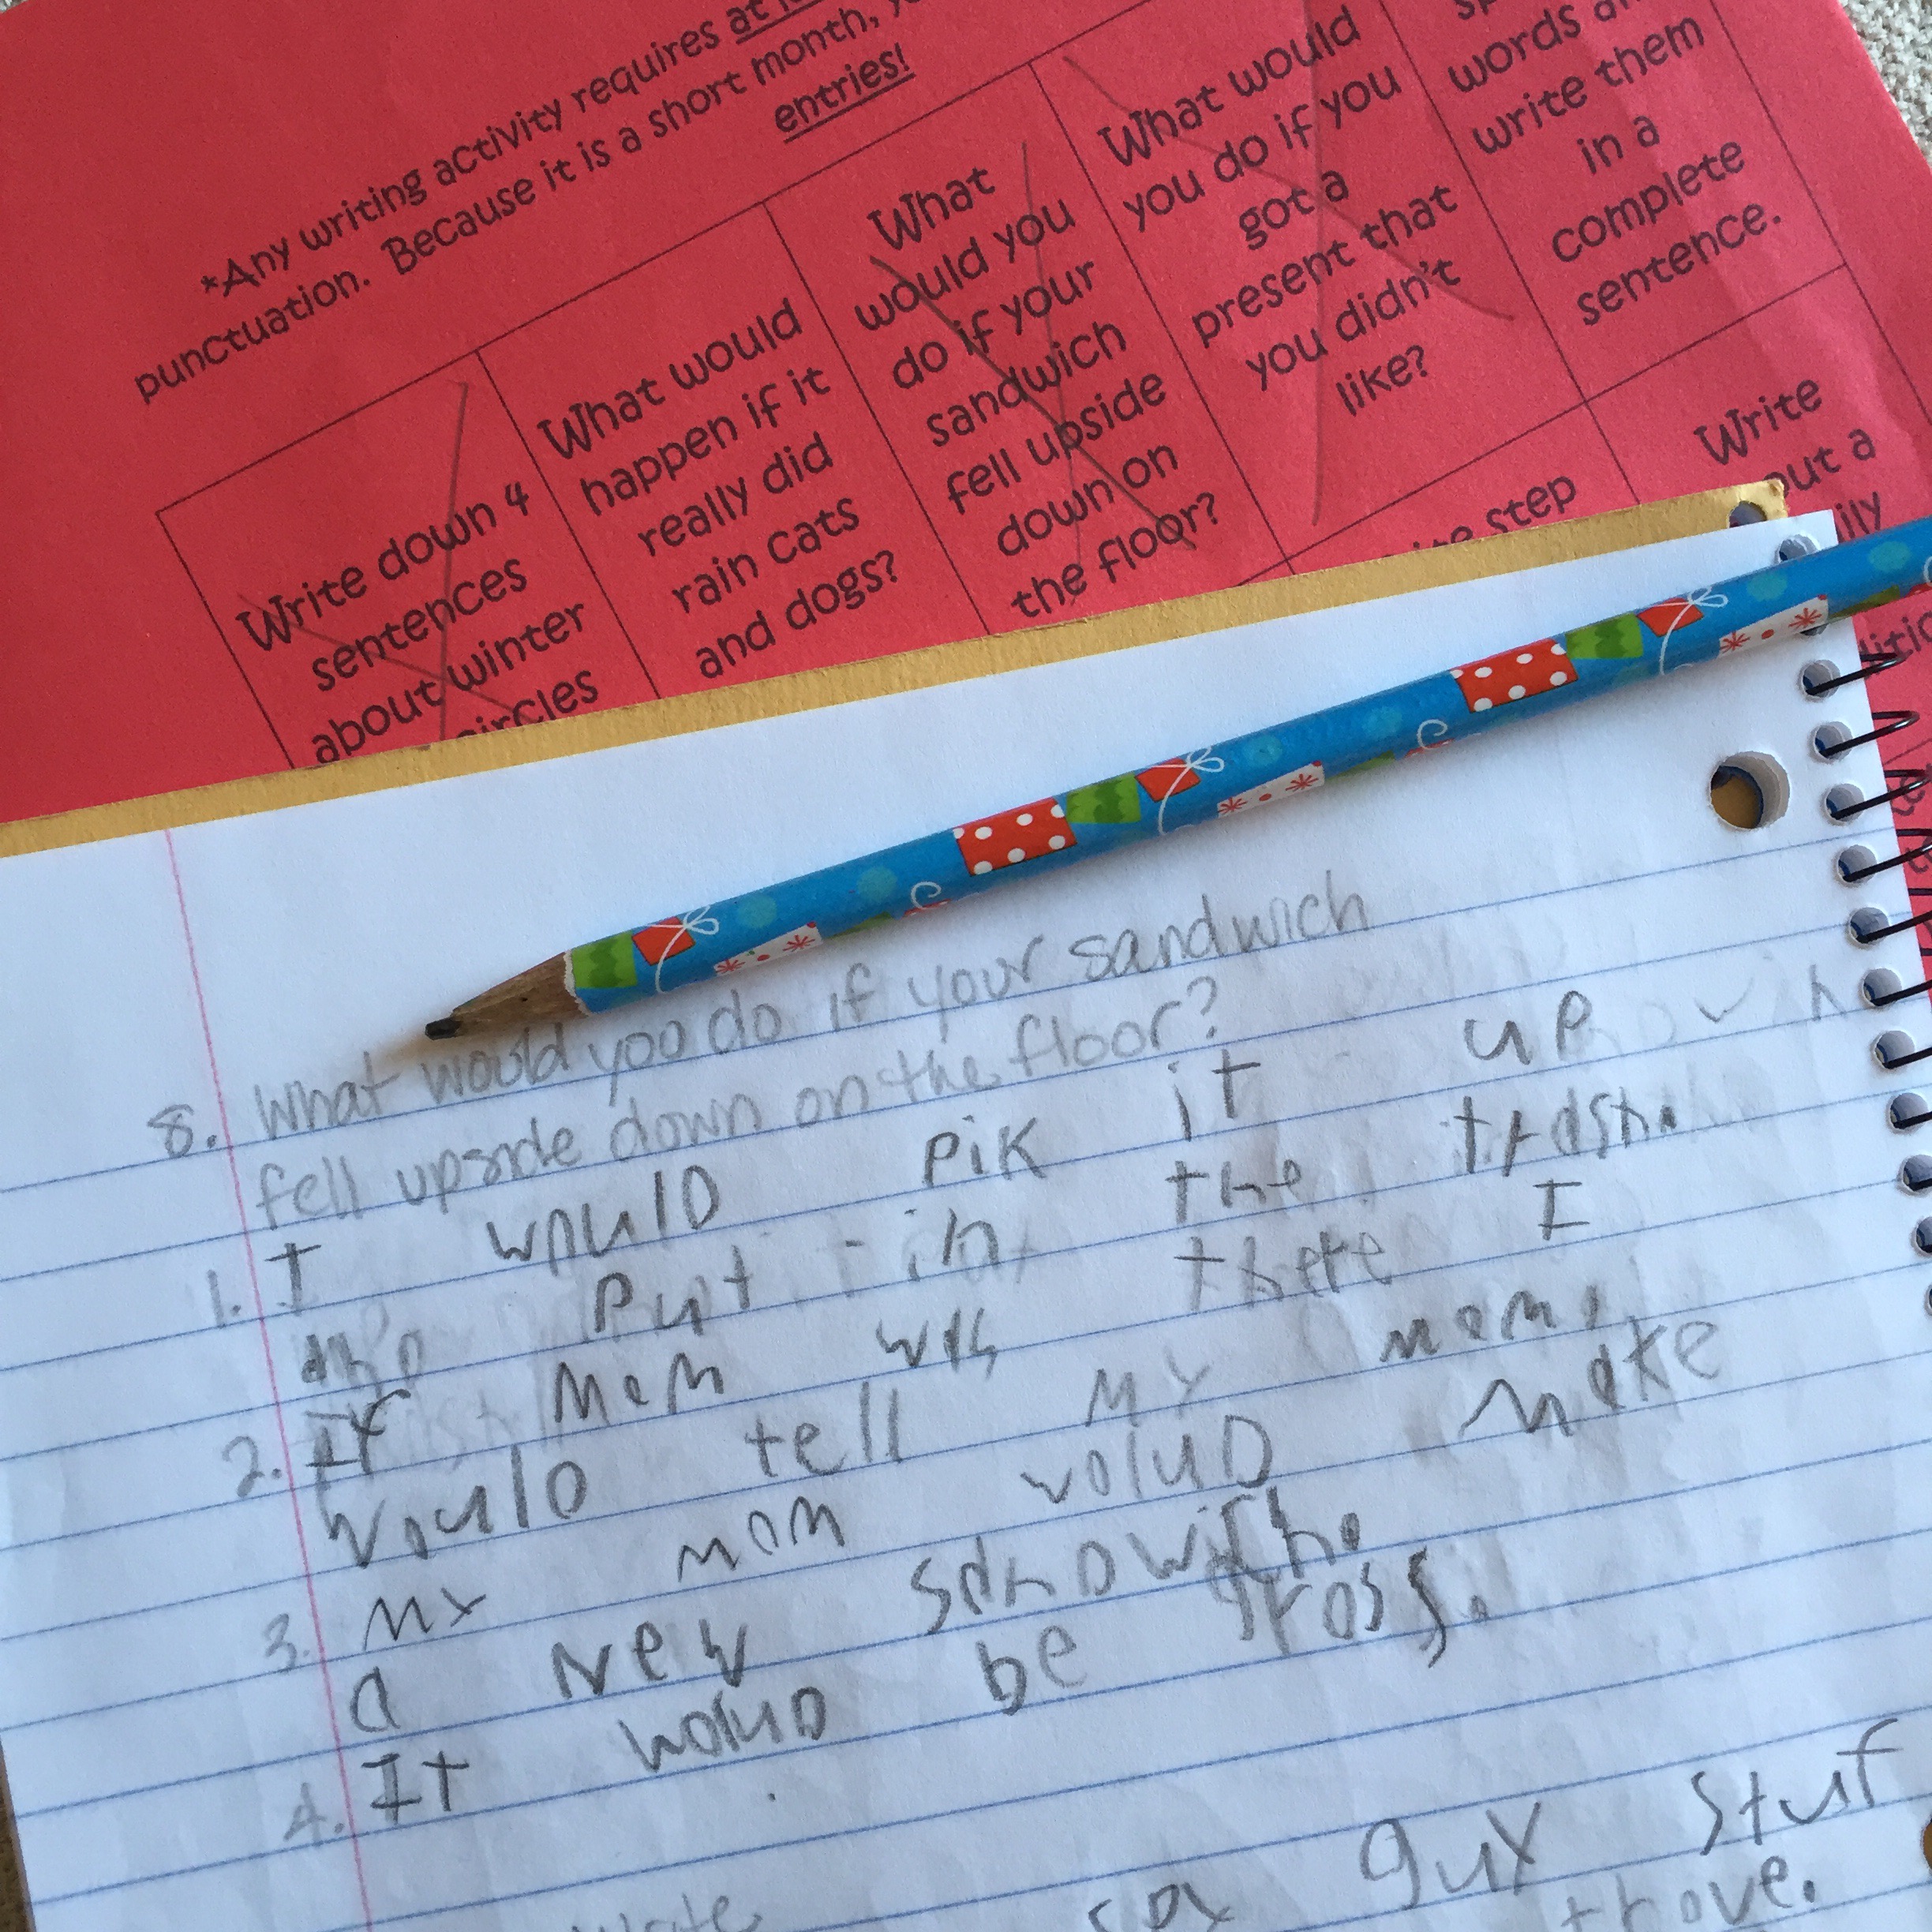 *Any writing activity requires at
punctuation. Because it is a short month,
entries!
Write down 4
sentences
about winter
circles
What would
happen if it
really did
rain cats
and dogs?
What
would you
do if your
sandwich
fell upside
down on
the floor?
What would
you do if you
got a
present that
you didn't
like?
words
write them
in a
complete
sentence.
step
Write
a
8. What would you do if your sandwich
fell upside down on the floor?
1. I would pik it up
and put in the trash.
2. If mom was there I
would tell my mom.
3. My mom wolud make
a New sandwich.
4. It wolud be gross.
guy stuf